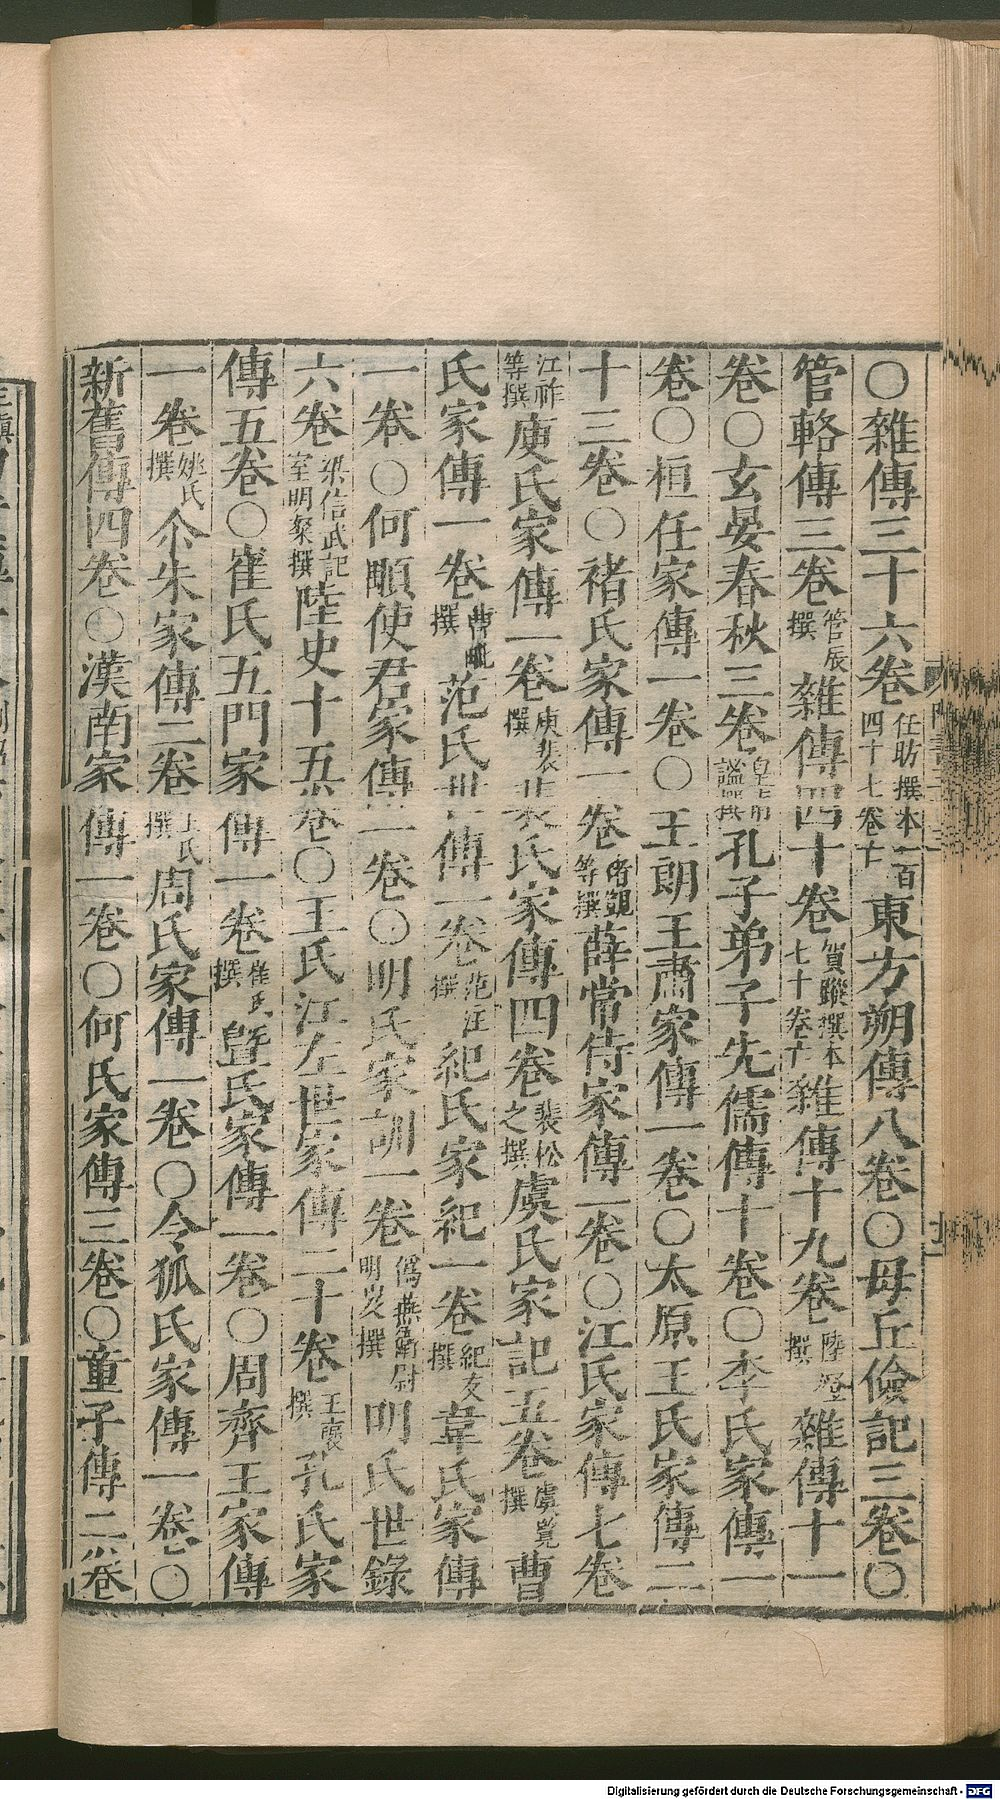 ○雜傳三十六卷任昉撰本一百四十七卷亡東方朔傳八卷○毋丘儉記三卷○
管輅傳三卷管辰撰雜傳四十卷賀蹤撰本七十卷亡雜傳十九卷陸澄撰雜傳十一
卷○玄晏春秋三卷皇甫謐撰孔子弟子先儒傳十卷○李氏家傳一
卷○桓任家傳一卷○王朗王肅家傳一卷○太原王氏家傳二
十三卷○褚氏家傳一卷褚覬等撰薛常侍家傳一卷○江氏家傳七卷
江祚等撰庾氏家傳一卷庾裴撰裴氏家傳四卷裴松之撰虞氏家記五卷虞覽撰曹
氏家傳一卷曹毗撰范氏世傳一卷范汪撰紀氏家紀一卷紀友撰韋氏家傳
一卷○何顒使君家傳一卷○明氏家訓一卷偽燕衛尉明岌撰明氏世錄
六卷梁信武記室明粲撰陸史十五卷○王氏江左世家傳二十卷王裒撰孔氏家
傳五卷○崔氏五門家傳一卷崔氏撰曁氏家傳一卷○周齊王家傳
一卷姚氏撰尒朱家傳二卷王氏撰周氏家傳一卷○令狐氏家傳一卷○
新舊傳四卷○漢南家傳一卷○何氏家傳三卷○童子傳二卷
Digitalisierung gefördert durch die Deutsche Forschungsgemeinschaft - DFG